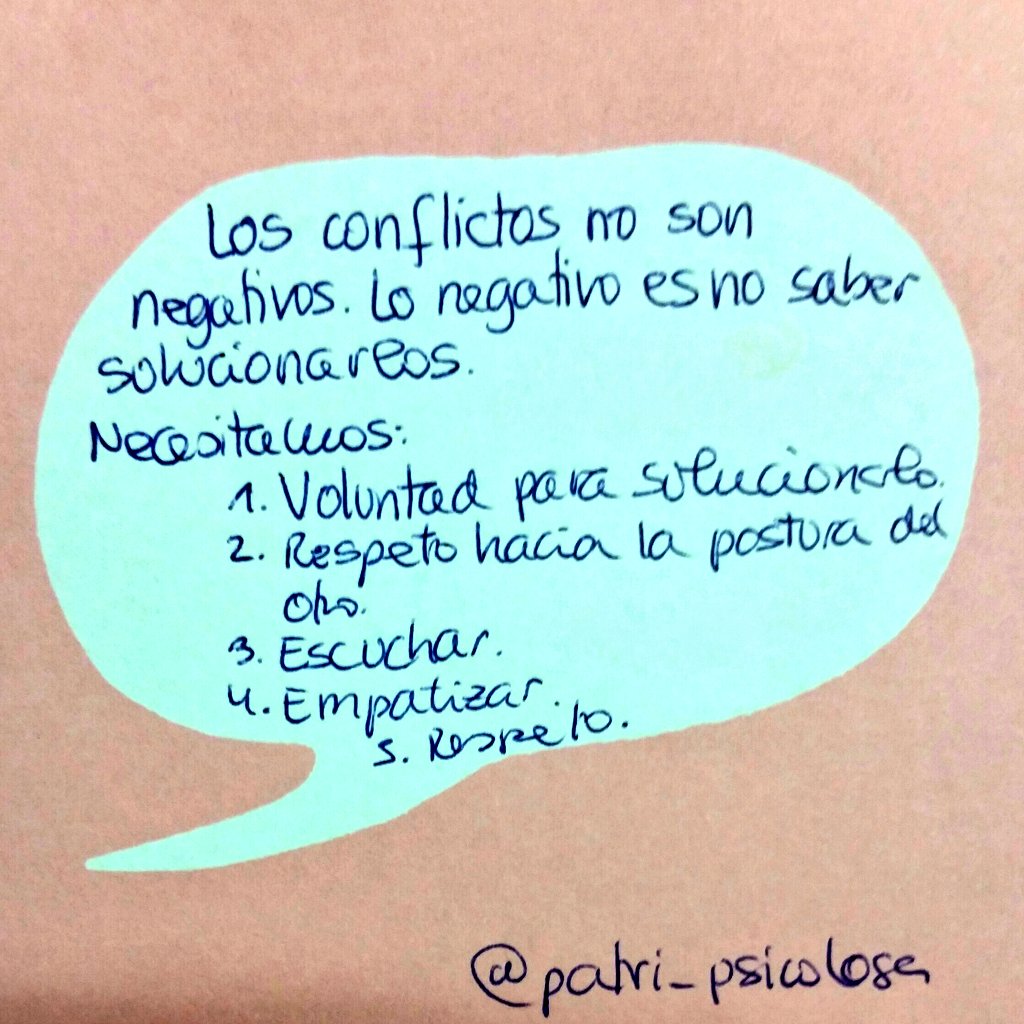 Los conflictos no son
negativos. Lo negativo es no saber
solucionarlos.
Necesitamos:
1. Voluntad para solucionarlo.
2. Respeto hacia la postura del
otro.
3. Escuchar.
4. Empatizar.
5. Respeto.
@patri_psicologa